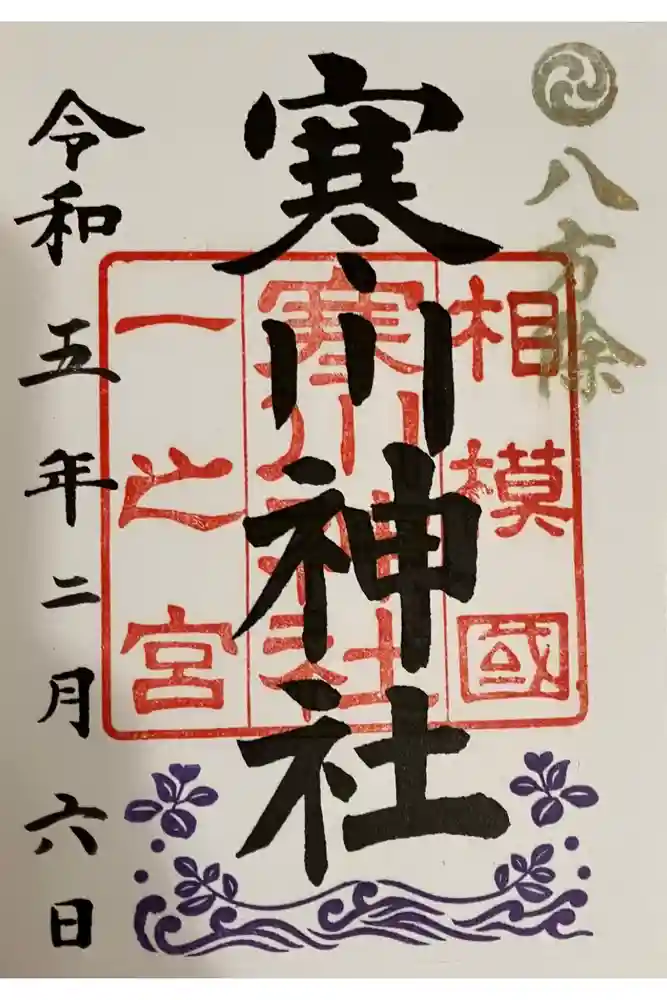 八方除
相模國
寒川神社
一之宮
寒川神社
令和五年二月六日